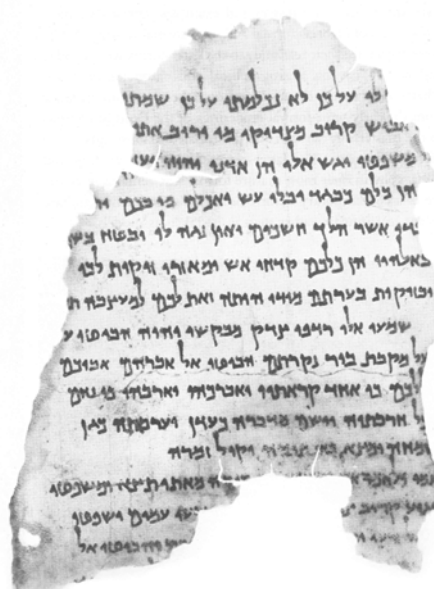 על כן לא נכלמתי על כן שמתי
אבוש קרוב מצדיקי מי יריב אתי
משפטי יגש אלי הן אדני יהוה
הן כלם כבגד יבלו עש יאכלם מי בכם
אשר הלך חשכים ואין נגה לו יבטח בשם
באלהיו הן כלכם קדחי אש ומאזרי זיקות לכו
ובזיקות בערתם מידי היתה זאת לכם למעצבה ת
שמעו אלי רדפי צדק מבקשי יהוה הביטו
על מקבת בור נקרתם הביטו אל אברהם אביכם
כי אחד קראתיו ואברכהו וארבהו כי נחם
חרבתיה וישם מדברה כעדן וערבתה כגן
ימצא וקול זמרה
מאתי תצא ומשפטי
קרוב עמים ישפטו
אל